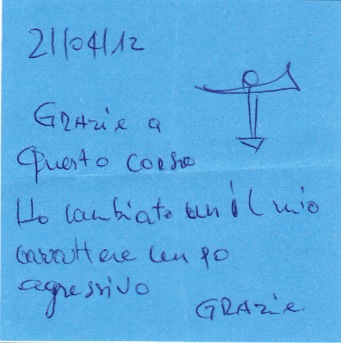 21/04/12
GRAZie a
Questo corso
Ho cambiato il mio
carattere un po
agressivo
GRAZie.